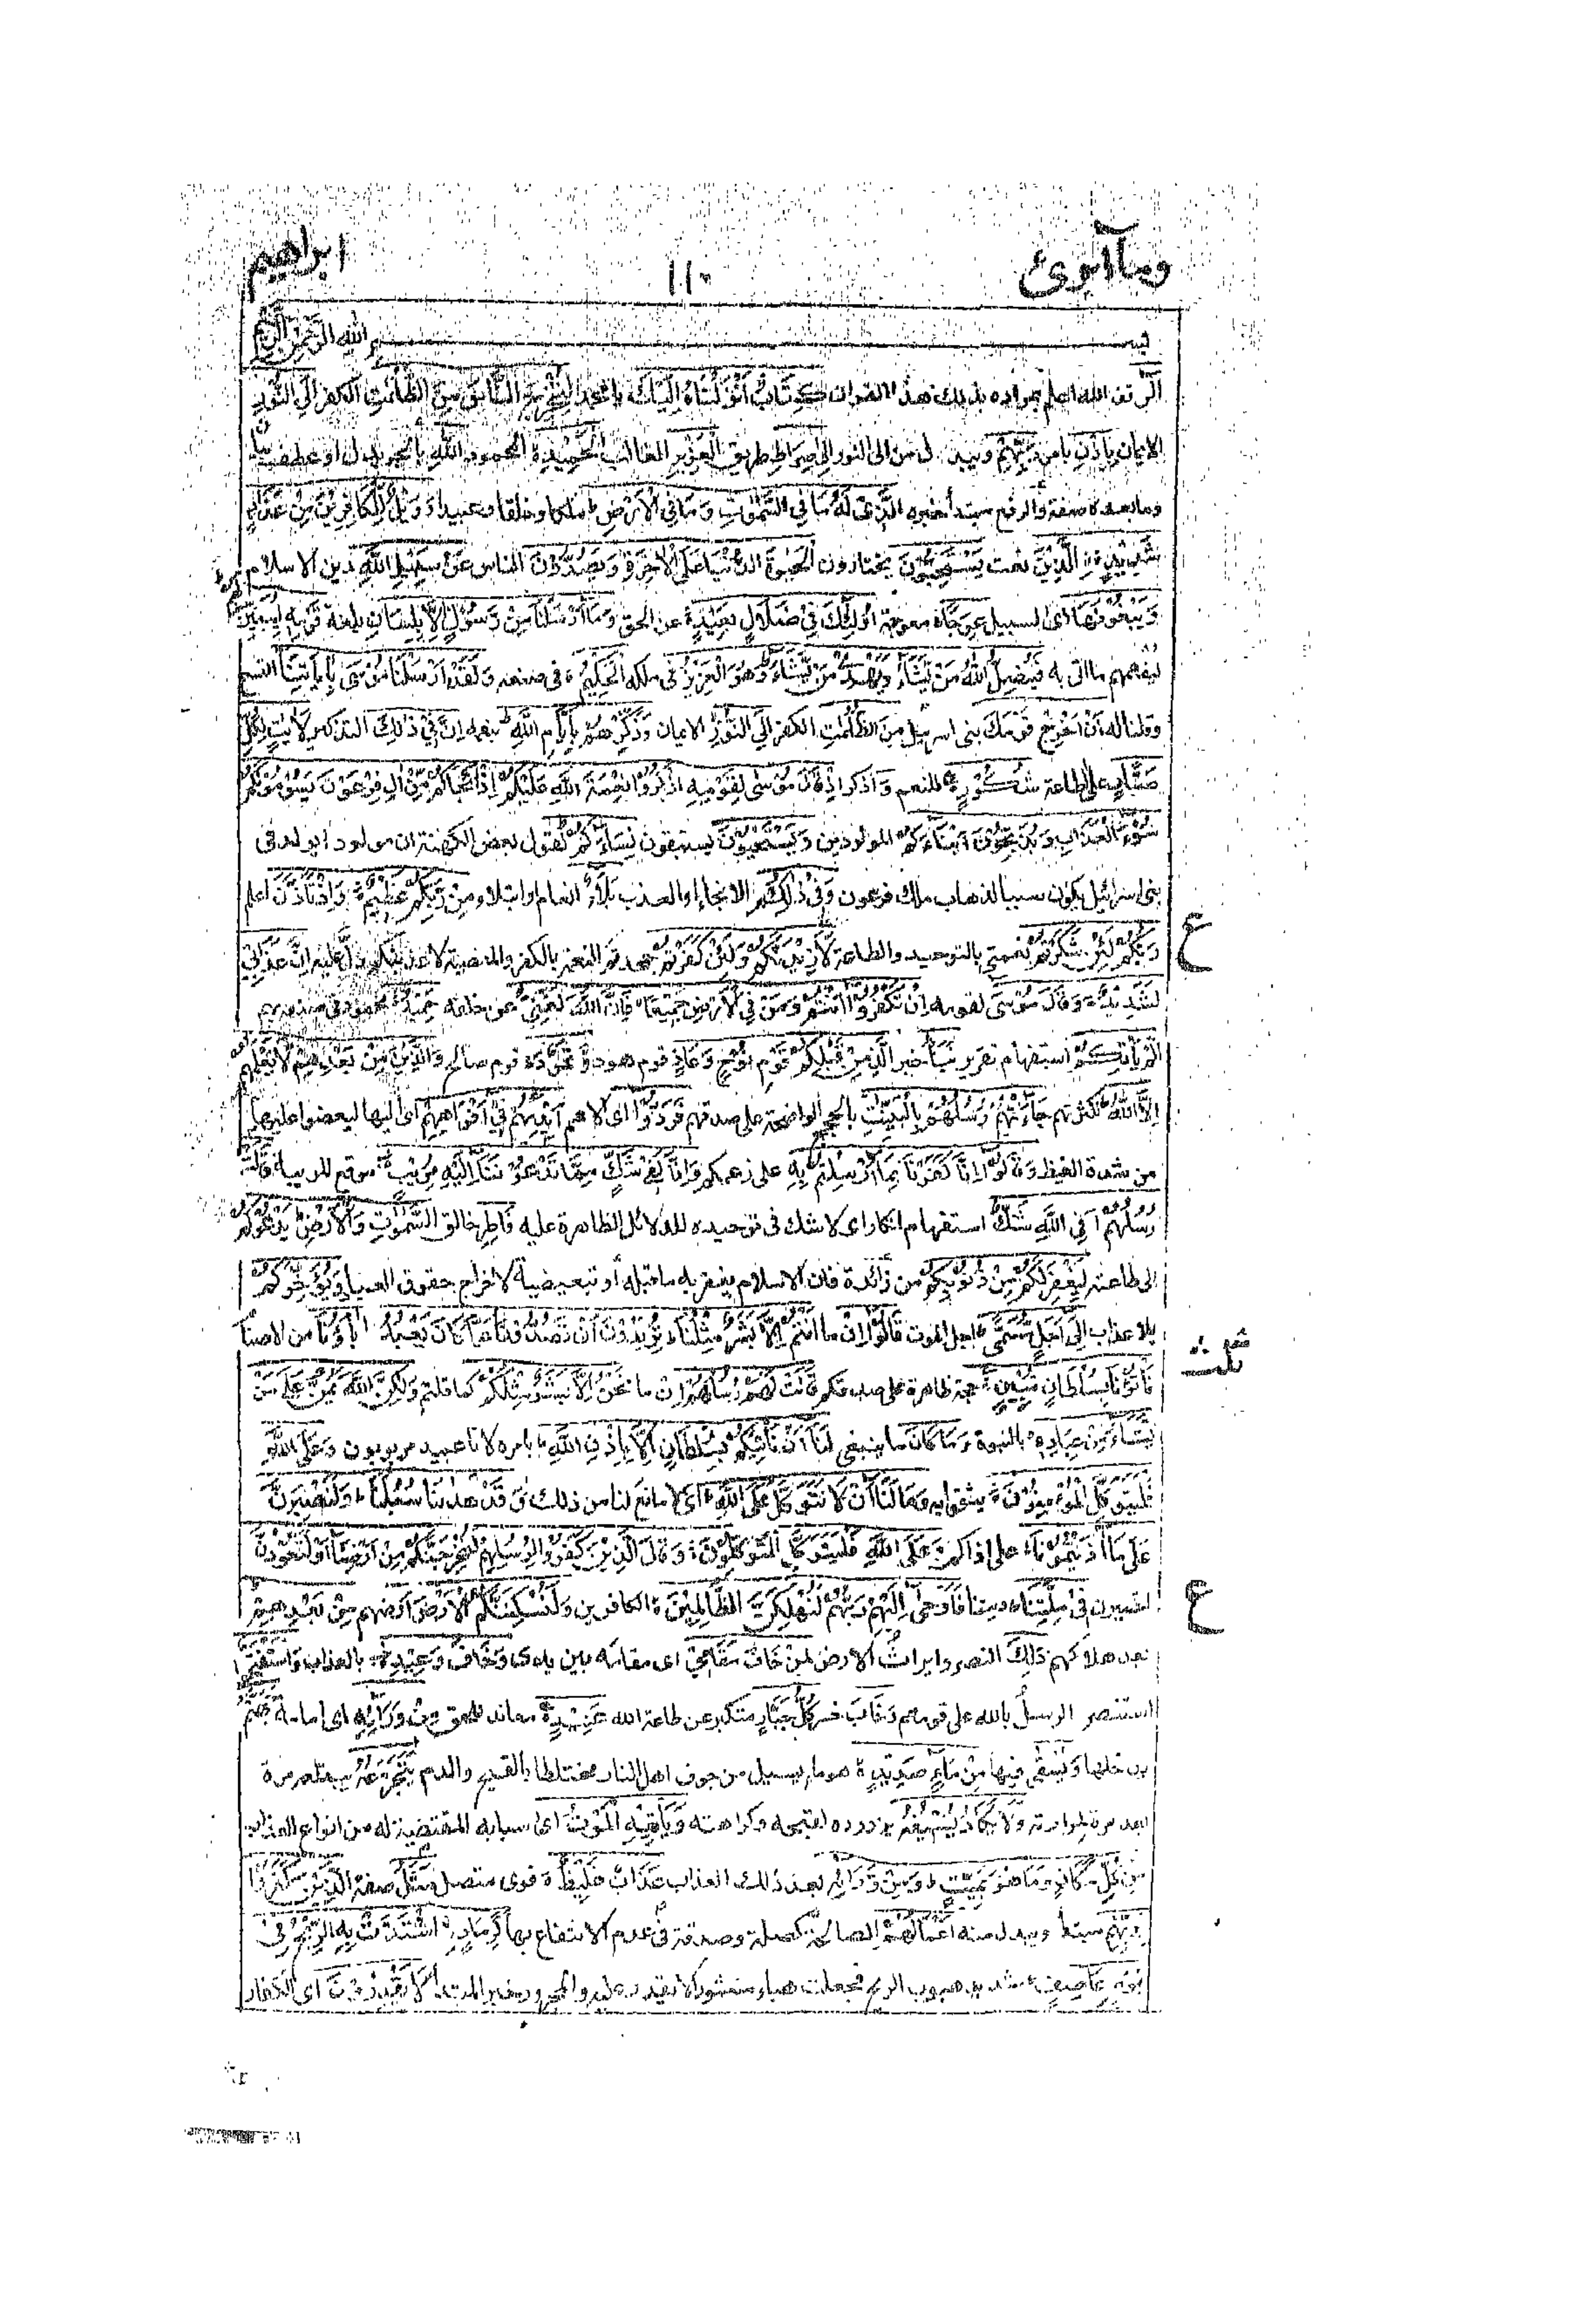 وما أبرئ
١١٠
ابراهيم
بسم الله الرحمن الرحيم
الٓرٰ قف الله اعلم بمراده بذلك هذا القران كِتَابٌ اَنْزَلْنَاهُ اِلَيْكَ يا محمد لِتُخْرِجَ النَّاسَ مِنَ الظُّلُمٰتِ الكفر اِلَى النُّوْرِ
الايمان بِاِذْنِ بامر رَبِّهِمْ ويبدل من الى النور اِلٰى صِرَاطِ طريق الْعَزِيْزِ الغالب الْحَمِيْدِ ۙ المحمود اللهِ بالجر بدل او عطف بيان
وما بعده صفة والرفع مبتدأ خبره الَّذِىْ لَهٗ مَا فِى السَّمٰوٰتِ وَمَا فِى الْاَرْضِ ؕ ملكا وخلقا وعبيدا وَوَيْلٌ لِّلْكَافِرِيْنَ مِنْ عَذَابٍ
شَدِيْدِۙ نِ الَّذِيْنَ نعت يَسْتَحِبُّوْنَ يختارون الْحَيٰوةَ الدُّنْيَا عَلَى الْاٰخِرَةِ وَيَصُدُّوْنَ الناس عَنْ سَبِيْلِ اللهِ دين الاسلام
وَيَبْغُوْنَهَا اى السبيل عِوَجًا ؕ معوجة اُولٰٓئِكَ فِىْ ضَلَالٍ بَعِيْدٍ عن الحق وَمَا اَرْسَلْنَا مِنْ رَّسُوْلٍ اِلَّا بِلِسَانِ بلغة قَوْمِهٖ لِيُبَيِّنَ لَهُمْ
ليفهمهم ما اتى به فَيُضِلُّ اللهُ مَنْ يَّشَآءُ وَيَهْدِىْ مَنْ يَّشَآءُ ؕ وَهُوَ الْعَزِيْزُ فى ملكه الْحَكِيْمُ فى صنعه وَلَقَدْ اَرْسَلْنَا مُوْسٰى بِاٰيَاتِنَا التسع
وقلنا له اَنْ اَخْرِجْ قَوْمَكَ بنى اسرائيل مِنَ الظُّلُمٰتِ الكفر اِلَى النُّوْرِ الايمان وَذَكِّرْهُمْ بِاَيَّامِ اللهِ ؕ بنعمه اِنَّ فِىْ ذٰلِكَ التذكير لَاٰيٰتٍ لِّكُلِّ
صَبَّارٍ على الطاعة شَكُوْرٍ للنعم وَاذكر اِذْ قَالَ مُوْسٰى لِقَوْمِهِ اذْكُرُوْا نِعْمَةَ اللهِ عَلَيْكُمْ اِذْ اَنْجَاكُمْ مِّنْ اٰلِ فِرْعَوْنَ يَسُوْمُوْنَكُمْ
سُوْٓءَ الْعَذَابِ وَيُذَبِّحُوْنَ اَبْنَآءَكُمْ المولودين وَيَسْتَحْيُوْنَ يستبقون نِسَآءَكُمْ ؕ لقول بعض الكهنة ان مولودا يولد فى
بنى اسرائيل يكون سببا لذهاب ملك فرعون وَفِىْ ذٰلِكُمْ الانجاء او العذب بَلَآءٌ انعام او ابتلاء مِنْ رَّبِّكُمْ عَظِيْمٌ وَاِذْ تَاَذَّنَ اعلم
ع
رَبُّكُمْ لَئِنْ شَكَرْتُمْ نعمتى بالتوحيد والطاعة لَاَزِيْدَنَّكُمْ وَلَئِنْ كَفَرْتُمْ جحدتم النعمة بالكفر والمعصية لاعذبنكم دل عليه اِنَّ عَذَابِىْ
لَشَدِيْدٌ وَقَالَ مُوْسٰى لقومه اِنْ تَكْفُرُوْٓا اَنْتُمْ وَمَنْ فِى الْاَرْضِ جَمِيْعًا ۙ فَاِنَّ اللهَ لَغَنِىٌّ عن خلقه حَمِيْدٌ محمود فى صنعه بهم
اَلَمْ يَاْتِكُمْ استفهام تقرير نَبَاُ خبر الَّذِيْنَ مِنْ قَبْلِكُمْ قَوْمِ نُوْحٍ وَّعَادٍ قوم هود وَّثَمُوْدَ ۛ قوم صالح وَالَّذِيْنَ مِنْ بَعْدِهِمْ ۛ لَا يَعْلَمُهُمْ
اِلَّا اللهُ ؕ لكثرتهم جَآءَتْهُمْ رُسُلُهُمْ بِالْبَيِّنٰتِ بالحجج الواضحة على صدقهم فَرَدُّوْٓا اى الامم اَيْدِيَهُمْ فِىْٓ اَفْوَاهِهِمْ اى اليها ليعضوا عليها
من شدة الغيظ وَقَالُوْٓا اِنَّا كَفَرْنَا بِمَآ اُرْسِلْتُمْ بِهٖ على زعمكم وَاِنَّا لَفِىْ شَكٍّ مِّمَّا تَدْعُوْنَنَآ اِلَيْهِ مُرِيْبٍ موقع للريبة قَالَتْ
رُسُلُهُمْ اَفِى اللهِ شَكٌّ استفهام انكار اى لا شك فى توحيده للدلائل الظاهرة عليه فَاطِرِ خالق السَّمٰوٰتِ وَالْاَرْضِ ؕ يَدْعُوْكُمْ
الى طاعته لِيَغْفِرَ لَكُمْ مِّنْ ذُنُوْبِكُمْ من زائدة فان الاسلام يغفر به ما قبله أو تبعيضية لاخراج حقوق العباد وَيُؤَخِّرَكُمْ
بلا عذاب اِلٰٓى اَجَلٍ مُّسَمًّى ؕ اجل الموت قَالُوْٓا اِنْ ما اَنْتُمْ اِلَّا بَشَرٌ مِّثْلُنَا ؕ تُرِيْدُوْنَ اَنْ تَصُدُّوْنَا عَمَّا كَانَ يَعْبُدُ اٰبَآؤُنَا من الاصنام
ثلث
فَاْتُوْنَا بِسُلْطَانٍ مُّبِيْنٍ حجة ظاهرة على صدقكم قَالَتْ لَهُمْ رُسُلُهُمْ اِنْ ما نَّحْنُ اِلَّا بَشَرٌ مِّثْلُكُمْ كما قلتم وَلٰكِنَّ اللهَ يَمُنُّ عَلٰى مَنْ
يَّشَآءُ مِنْ عِبَادِهٖ ؕ بالنبوة وَمَا كَانَ ما ينبغى لَنَآ اَنْ نَّاْتِيَكُمْ بِسُلْطَانٍ اِلَّا بِاِذْنِ اللهِ ؕ بامره لانا عبيد مربوبون وَعَلَى اللهِ
فَلْيَتَوَكَّلِ الْمُؤْمِنُوْنَ يثقوا به وَمَا لَنَآ اَنْ لَا نَتَوَكَّلَ عَلَى اللهِ اى لا مانع لنا من ذلك وَقَدْ هَدٰىنَا سُبُلَنَا ؕ وَلَنَصْبِرَنَّ
عَلٰى مَآ اٰذَيْتُمُوْنَا ؕ على اذاكم وَعَلَى اللهِ فَلْيَتَوَكَّلِ الْمُتَوَكِّلُوْنَ وَقَالَ الَّذِيْنَ كَفَرُوْا لِرُسُلِهِمْ لَنُخْرِجَنَّكُمْ مِّنْ اَرْضِنَآ اَوْ لَتَعُوْدُنَّ
ع
لتصيرن فِىْ مِلَّتِنَا ؕ ديننا فَاَوْحٰٓى اِلَيْهِمْ رَبُّهُمْ لَنُهْلِكَنَّ الظَّالِمِيْنَ الكافرين وَلَنُسْكِنَنَّكُمُ الْاَرْضَ ارضهم مِنْ بَعْدِهِمْ
بعد هلاكهم ذٰلِكَ النصر وايراث الارض لِمَنْ خَافَ مَقَامِىْ اى مقامه بين يدى وَخَافَ وَعِيْدِ بالعذاب وَاسْتَفْتَحُوْا
استنصر الرسل بالله على قومهم وَخَابَ خسر كُلُّ جَبَّارٍ متكبر عن طاعة الله عَنِيْدٍ معاند للحق مِنْ وَّرَآئِهٖ اى امامه جَهَنَّمُ
يدخلها وَيُسْقٰى فيها مِنْ مَّآءٍ صَدِيْدٍ هو ماء يسيل من جوف اهل النار مختلطا بالقيح والدم يَّتَجَرَّعُهٗ يبتلعه مرة
بعد مرة لمرارته وَلَا يَكَادُ يُسِيْغُهٗ يزدرده لقبحه وكراهته وَيَاْتِيْهِ الْمَوْتُ اى اسبابه المقتضية له من انواع العذاب
مِنْ كُلِّ مَكَانٍ وَّمَا هُوَ بِمَيِّتٍ ؕ وَمِنْ وَّرَآئِهٖ بعد ذلك العذاب عَذَابٌ غَلِيْظٌ قوى متصل مَثَلُ صفة الَّذِيْنَ كَفَرُوْا
بِرَبِّهِمْ مبتدأ ويبدل منه اَعْمَالُهُمْ الصالحة كصلة وصدقة فى عدم الانتفاع بها كَرَمَادِ ِۨ اشْتَدَّتْ بِهِ الرِّيْحُ فِىْ
يَوْمٍ عَاصِفٍ شديد هبوب الريح فجعلته هباء منثورا لا يقدر عليه والمجرور خبر المبتدأ لَا يَقْدِرُوْنَ اى الكفار